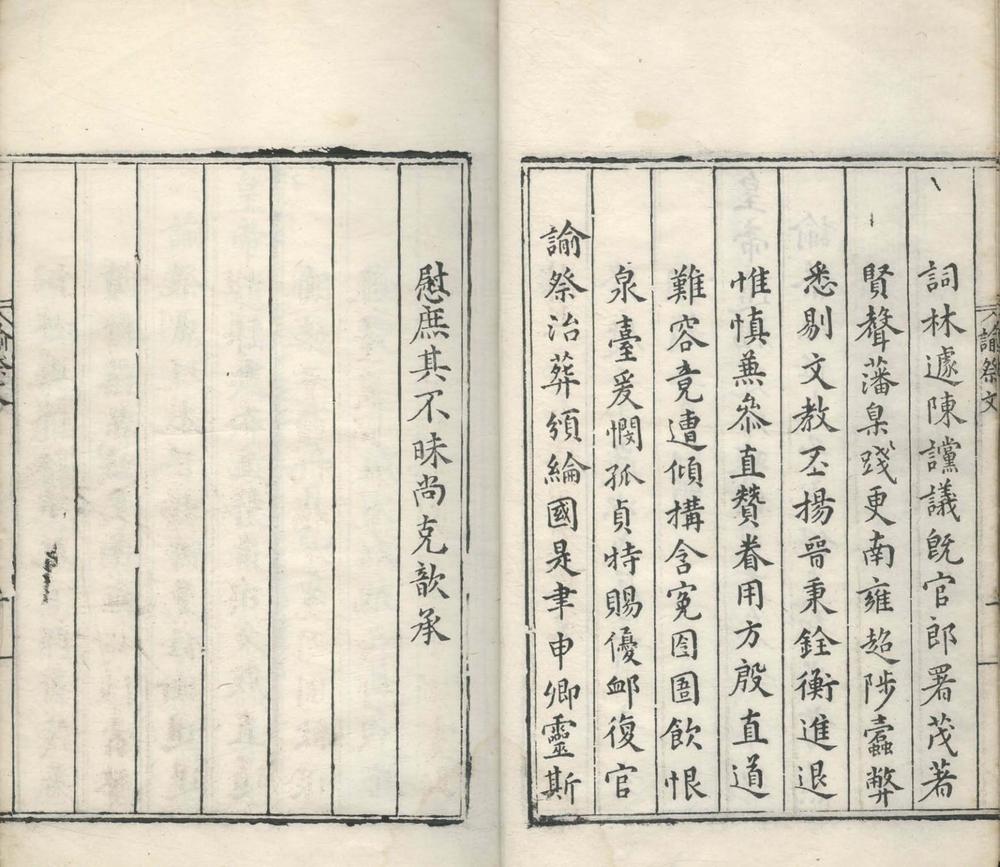 諭祭文
詞林遽陳讜議旣官郎署茂著
賢聲藩臬踐更南雍超陟蠹弊
悉剔文教丕揚晋秉銓衡進退
惟慎兼叅直贊眷用方殷直道
難容竟遭傾搆含寃囹圄飲恨
泉臺爰憫孤貞特賜優邮復官
諭祭治葬頒綸國是聿申卿靈斯
慰庶其不昧尚克歆承